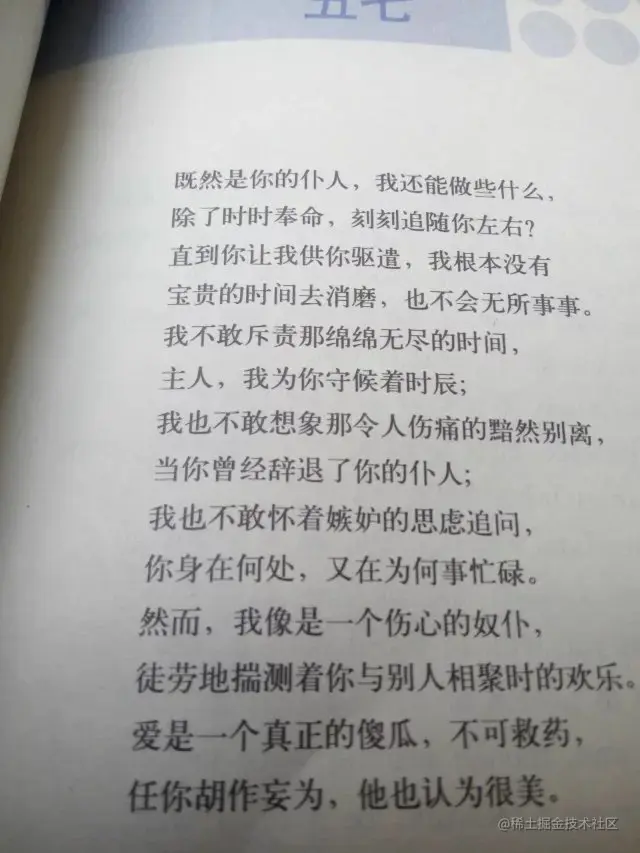 五七
既然是你的仆人，我还能做些什么，
除了时时奉命，刻刻追随你左右？
直到你让我供你驱遣，我根本没有
宝贵的时间去消磨，也不会无所事事。
我不敢斥责那绵绵无尽的时间，
主人，我为你守候着时辰；
我也不敢想象那令人伤痛的黯然别离，
当你曾经辞退了你的仆人；
我也不敢怀着嫉妒的思虑追问，
你身在何处，又在为何事忙碌。
然而，我像是一个伤心的奴仆，
徒劳地揣测着你与别人相聚时的欢乐。
爱是一个真正的傻瓜，不可救药，
任你胡作妄为，他也认为很美。
@稀土掘金技术社区